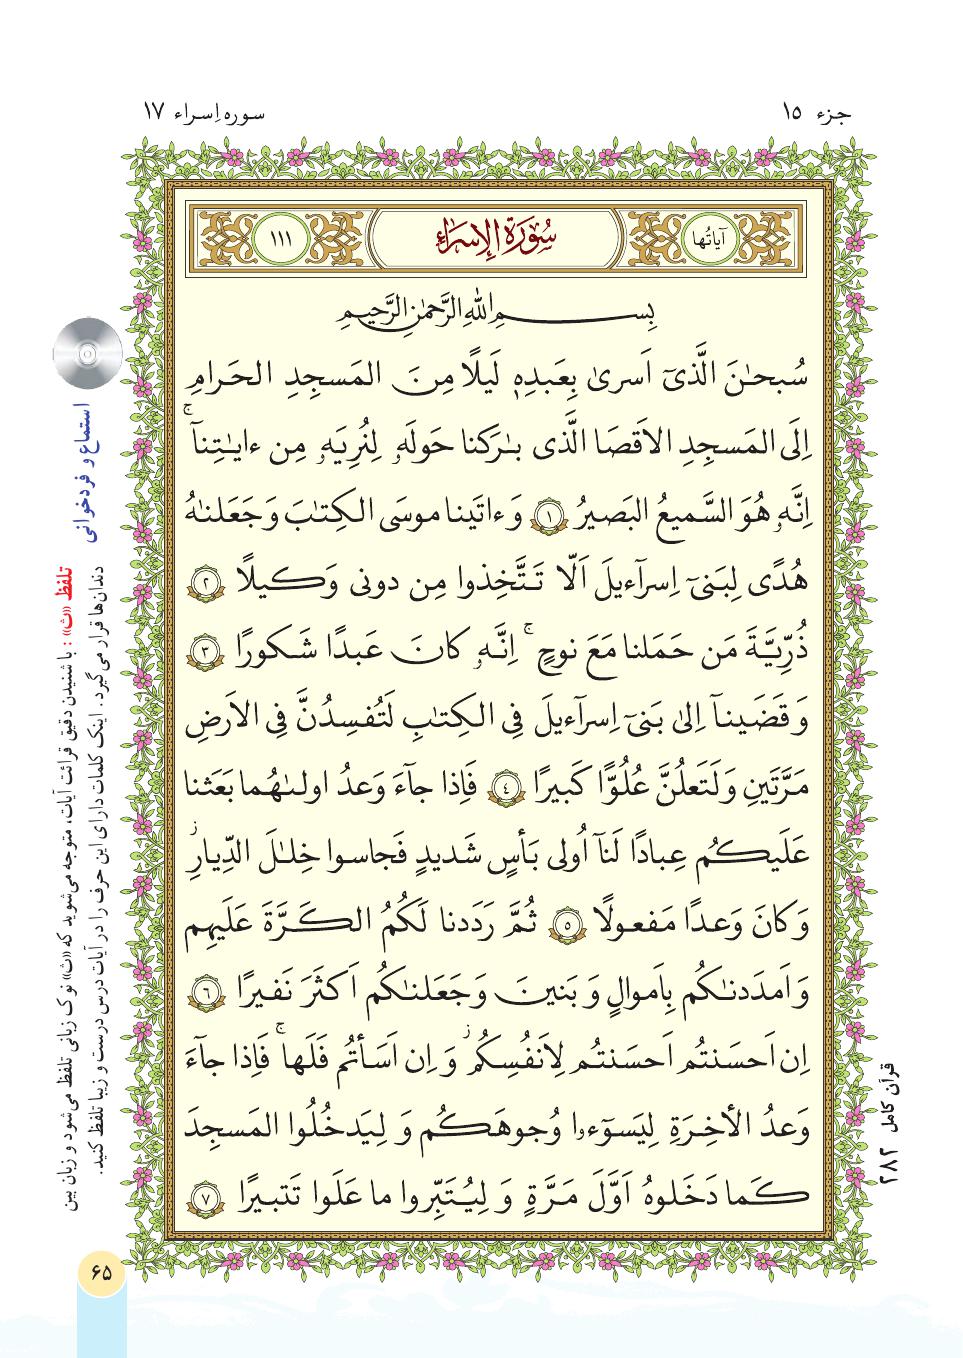 جزء ۱۵
سوره اِسراء ۱۷
آیاتُها
سُورَةُ الإِسرَاءِ
۱۱۱
بِسمِ اللهِ الرَّحمٰنِ الرَّحیمِ
سُبحـٰنَ الَّذیٓ اَسریٰ بِعَبدِهٖ لَیلًا مِنَ المَسجِدِ الحَرامِ
اِلَی المَسجِدِ الاَقصَا الَّذی بـٰرَکنا حَولَهٗ لِنُرِیَهٗ مِن ءایـٰتِنآ ۚ
اِنَّهٗ هُوَ السَّمیعُ البَصیرُ ۱ وَ ءاتَینا موسَی الکِتـٰبَ وَ جَعَلنـٰهُ
هُدًی لِبَنیٓ اِسرآءیلَ اَلّا تَتَّخِذوا مِن دونی وَکیلًا ۲
ذُرِّیَّةَ مَن حَمَلنا مَعَ نوحٍ ۚ اِنَّهٗ کانَ عَبدًا شَکورًا ۳
وَ قَضَینآ اِلیٰ بَنیٓ اِسرآءیلَ فِی الکِتـٰبِ لَتُفسِدُنَّ فِی الاَرضِ
مَرَّتَینِ وَ لَتَعلُنَّ عُلُوًّا کَبیرًا ٤ فَاِذا جآءَ وَعدُ اولـٰهُما بَعَثنا
عَلَیکُم عِبادًا لَنآ اُولی بَأسٍ شَدیدٍ فَجاسوا خِلـٰلَ الدِّیارِ ۚ
وَ کانَ وَعدًا مَفعولًا ٥ ثُمَّ رَدَدنا لَکُمُ الکَرَّةَ عَلَیهِم
وَ اَمدَدنـٰکُم بِاَموالٍ وَ بَنینَ وَ جَعَلنـٰکُم اَکثَرَ نَفیرًا ٦
اِن اَحسَنتُم اَحسَنتُم لِاَنفُسِکُم ۖ وَ اِن اَسَأتُم فَلَها ۚ فَاِذا جآءَ
وَعدُ الأٓخِرَةِ لِیَسوٓءوا وُجوهَکُم وَ لِیَدخُلُوا المَسجِدَ
کَما دَخَلوهُ اَوَّلَ مَرَّةٍ وَ لِیُتَبِّروا ما عَلَوا تَتبیرًا ۷
استماع و فردخوانی
تلفظ «ث» : با شنیدن دقیق قرائت آیات، متوجه می‌شوید که «ث» نوک زبانی تلفظ می‌شود و زبان بین
دندان‌ها قرار می‌گیرد. اینک کلمات دارای این حرف را در آیات درس درست و زیبا تلفظ کنید.
قرآن کامل ۲۸۲
۶۵